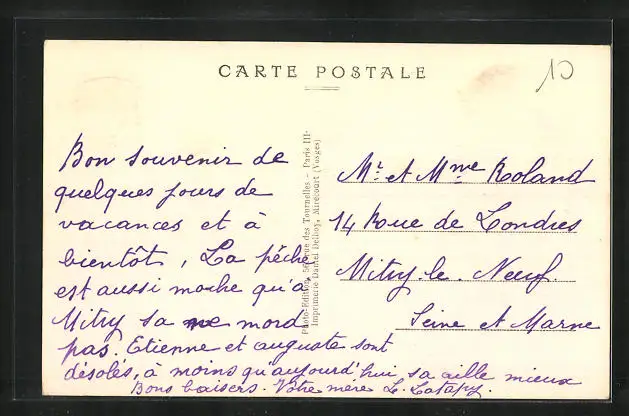 CARTE POSTALE
10
Bon souvenir de
quelques jours de
vacances et à
bientôt, La pêche
est aussi moche qu'à
Mitry sa ne mord
pas. Etienne et auguste sont
désolés, à moins qu'aujourd'hui sa aille mieux
Bons baisers. Votre mère L. Latapy.
Photo-Edition, rue des Tournelles - Paris III
Imprimerie Daniel Delboy, Mirecourt (Vosges)
Mr et Mme Roland
14 Rue de Londres
Mitry-le-Neuf.
Seine et Marne